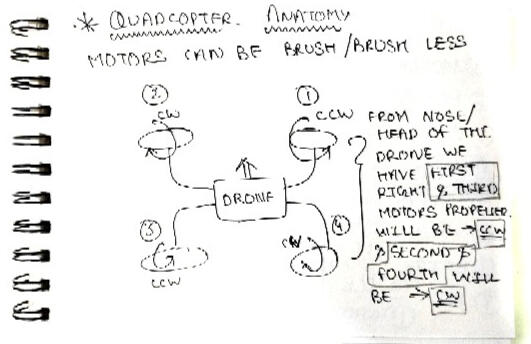 * QUADCOPTER. ANATOMY
MOTORS CAN BE BRUSH/BRUSH LESS
②
CW
①
CCW
DRONE
③
CCW
④
CW
FROM NOSE/
HEAD OF THE
DRONE WE
HAVE FIRST
RIGHT & THIRD
MOTORS PROPELLER
WILL BE → CCW
& SECOND &
FOURTH WILL
BE → CW